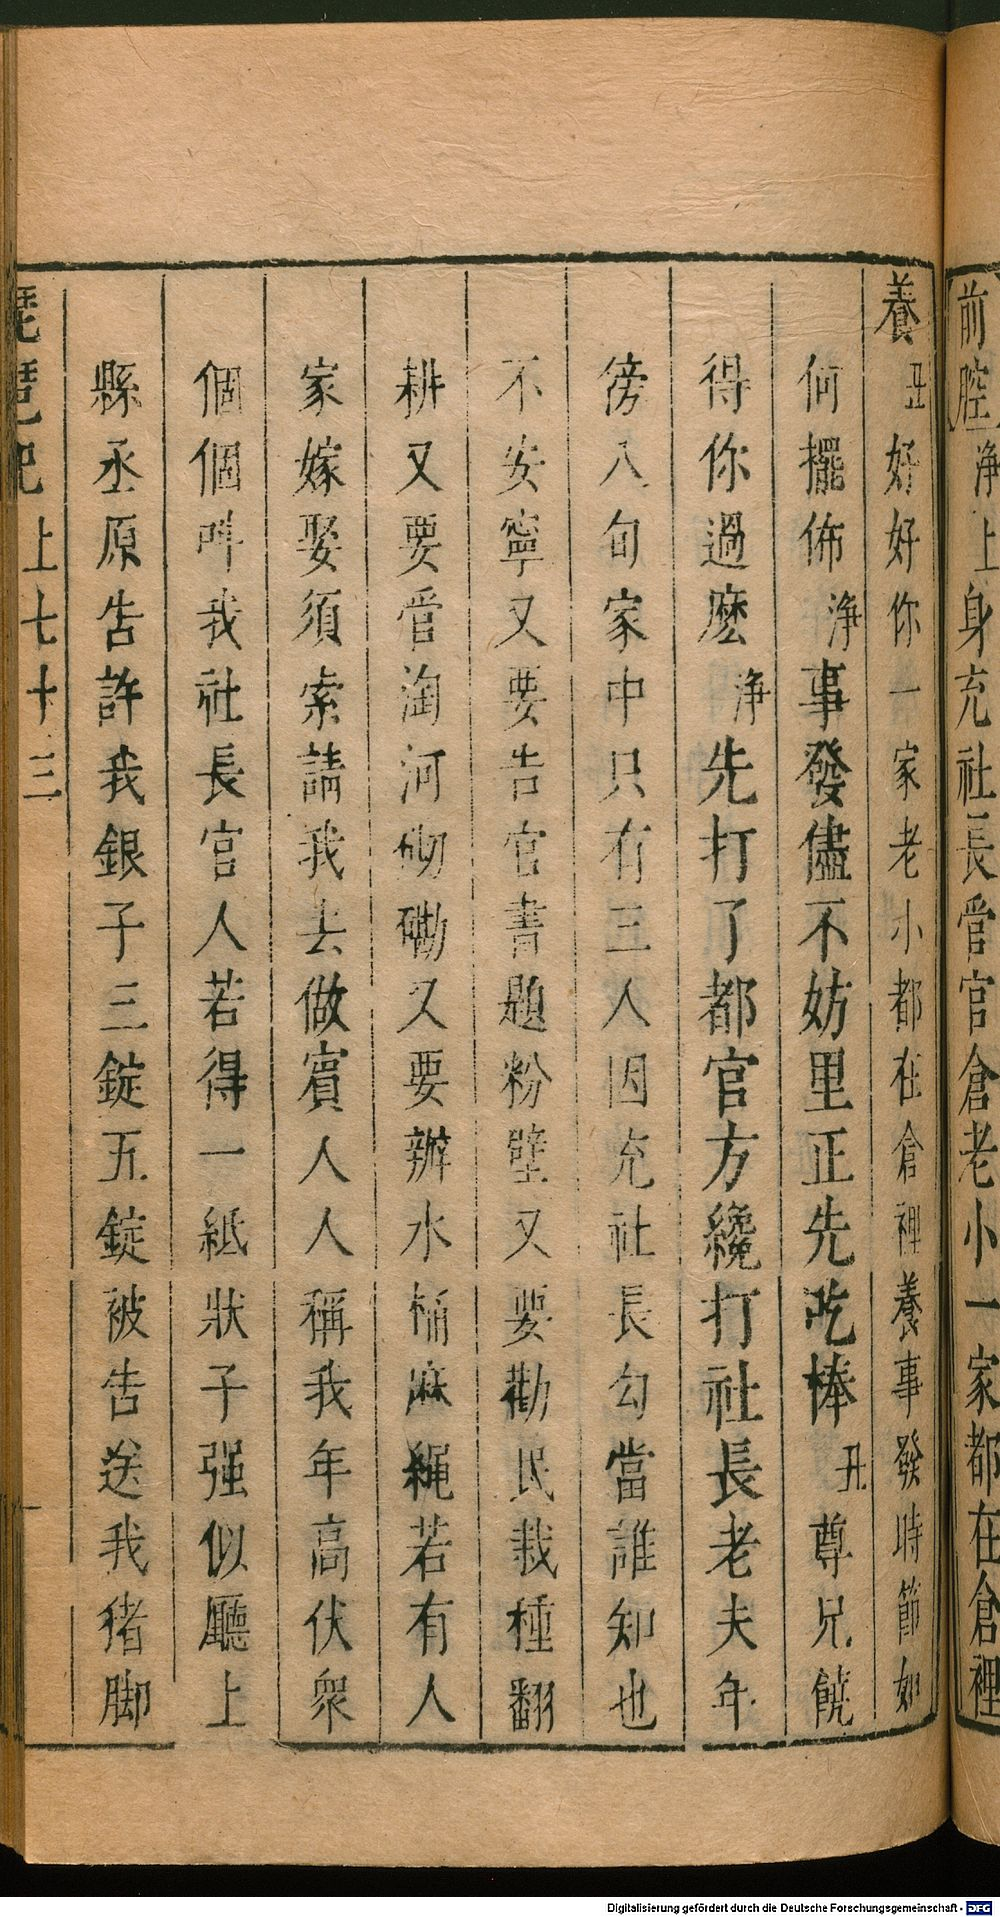 前腔淨上身充社長管官倉老小一家都在倉裡
養丑好好你一家老小都在倉裡養事發時節如
何擺佈淨事發儘不妨里正先吃棒丑尊兄饒
得你過麽淨先打了都官方纔打社長老夫年
傍八旬家中只有三人因充社長勾當誰知也
不安寧又要告官書題粉壁又要勸民栽種翻
耕又要管淘河砌磡又要辦水桶麻繩若有人
家嫁娶須索請我去做賓人人稱我年高伏衆
個個呌我社長官人若得一紙狀子强似廳上
縣丞原告許我銀子三錠五錠被告送我猪脚
琵琶記上七十三
Digitalisierung gefördert durch die Deutsche Forschungsgemeinschaft - DFG